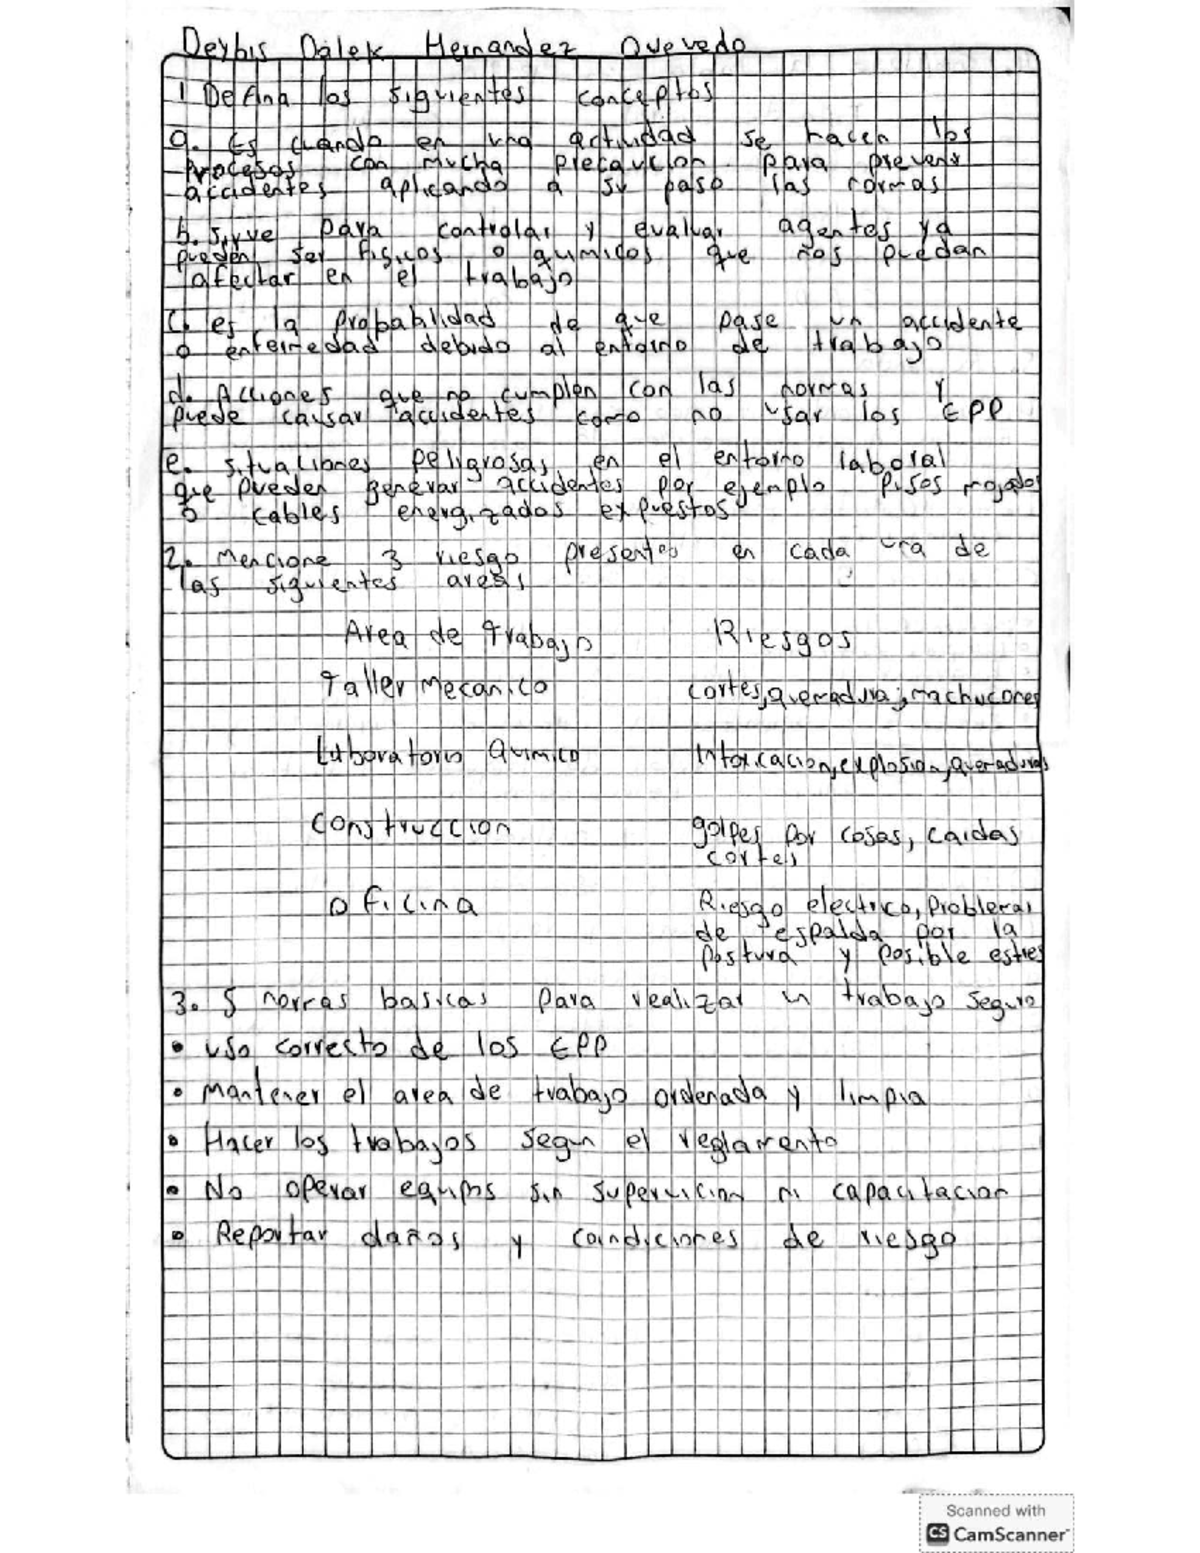 Deybis Dalek Hernandez Quevedo
1 Defina los siguientes conceptos
a. Es cuando en una actividad se hacen los
procesos con mucha precaucion para prevenir
accidentes aplicando a su paso las normas
b. Sirve para controlar y evaluar agentes ya
pueden ser fisicos o quimicos que nos puedan
afectar en el trabajo
C. es la probabilidad de que pase un accidente
o enfermedad debido al entorno de trabajo
d. Acciones que no cumplen con las normas y
puede causar accidentes como no usar los EPP
e. situaciones peligrosas en el entorno laboral
que pueden generar accidentes por ejemplo pisos mojados
o cables energizados expuestos
2. Mencione 3 riesgo presentes en cada una de
las siguientes areas
Area de trabajo Riesgos
Taller Mecanico cortes, quemadura, machucones
Laboratorio Quimico Intoxicacion, explosion, quemaduras
Construccion golpes por cosas, caidas
cortes
Oficina Riesgo electrico, problemas
de espalda por la
postura y posible estres
3. 5 normas basicas para realizar un trabajo seguro
• Uso correcto de los EPP
• Mantener el area de trabajo ordenada y limpia
• Hacer los trabajos segun el reglamento
• No operar equipos sin supervicion ni capacitacion
• Reportar daños y condiciones de riesgo
Scanned with
CS CamScanner